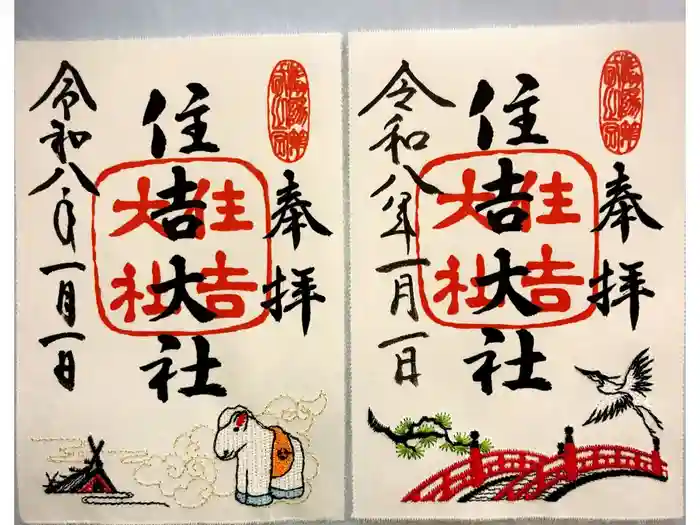 奉拝
住吉大社
住吉大社
令和八年一月一日
奉拝
住吉大社
住吉大社
令和八年一月一日